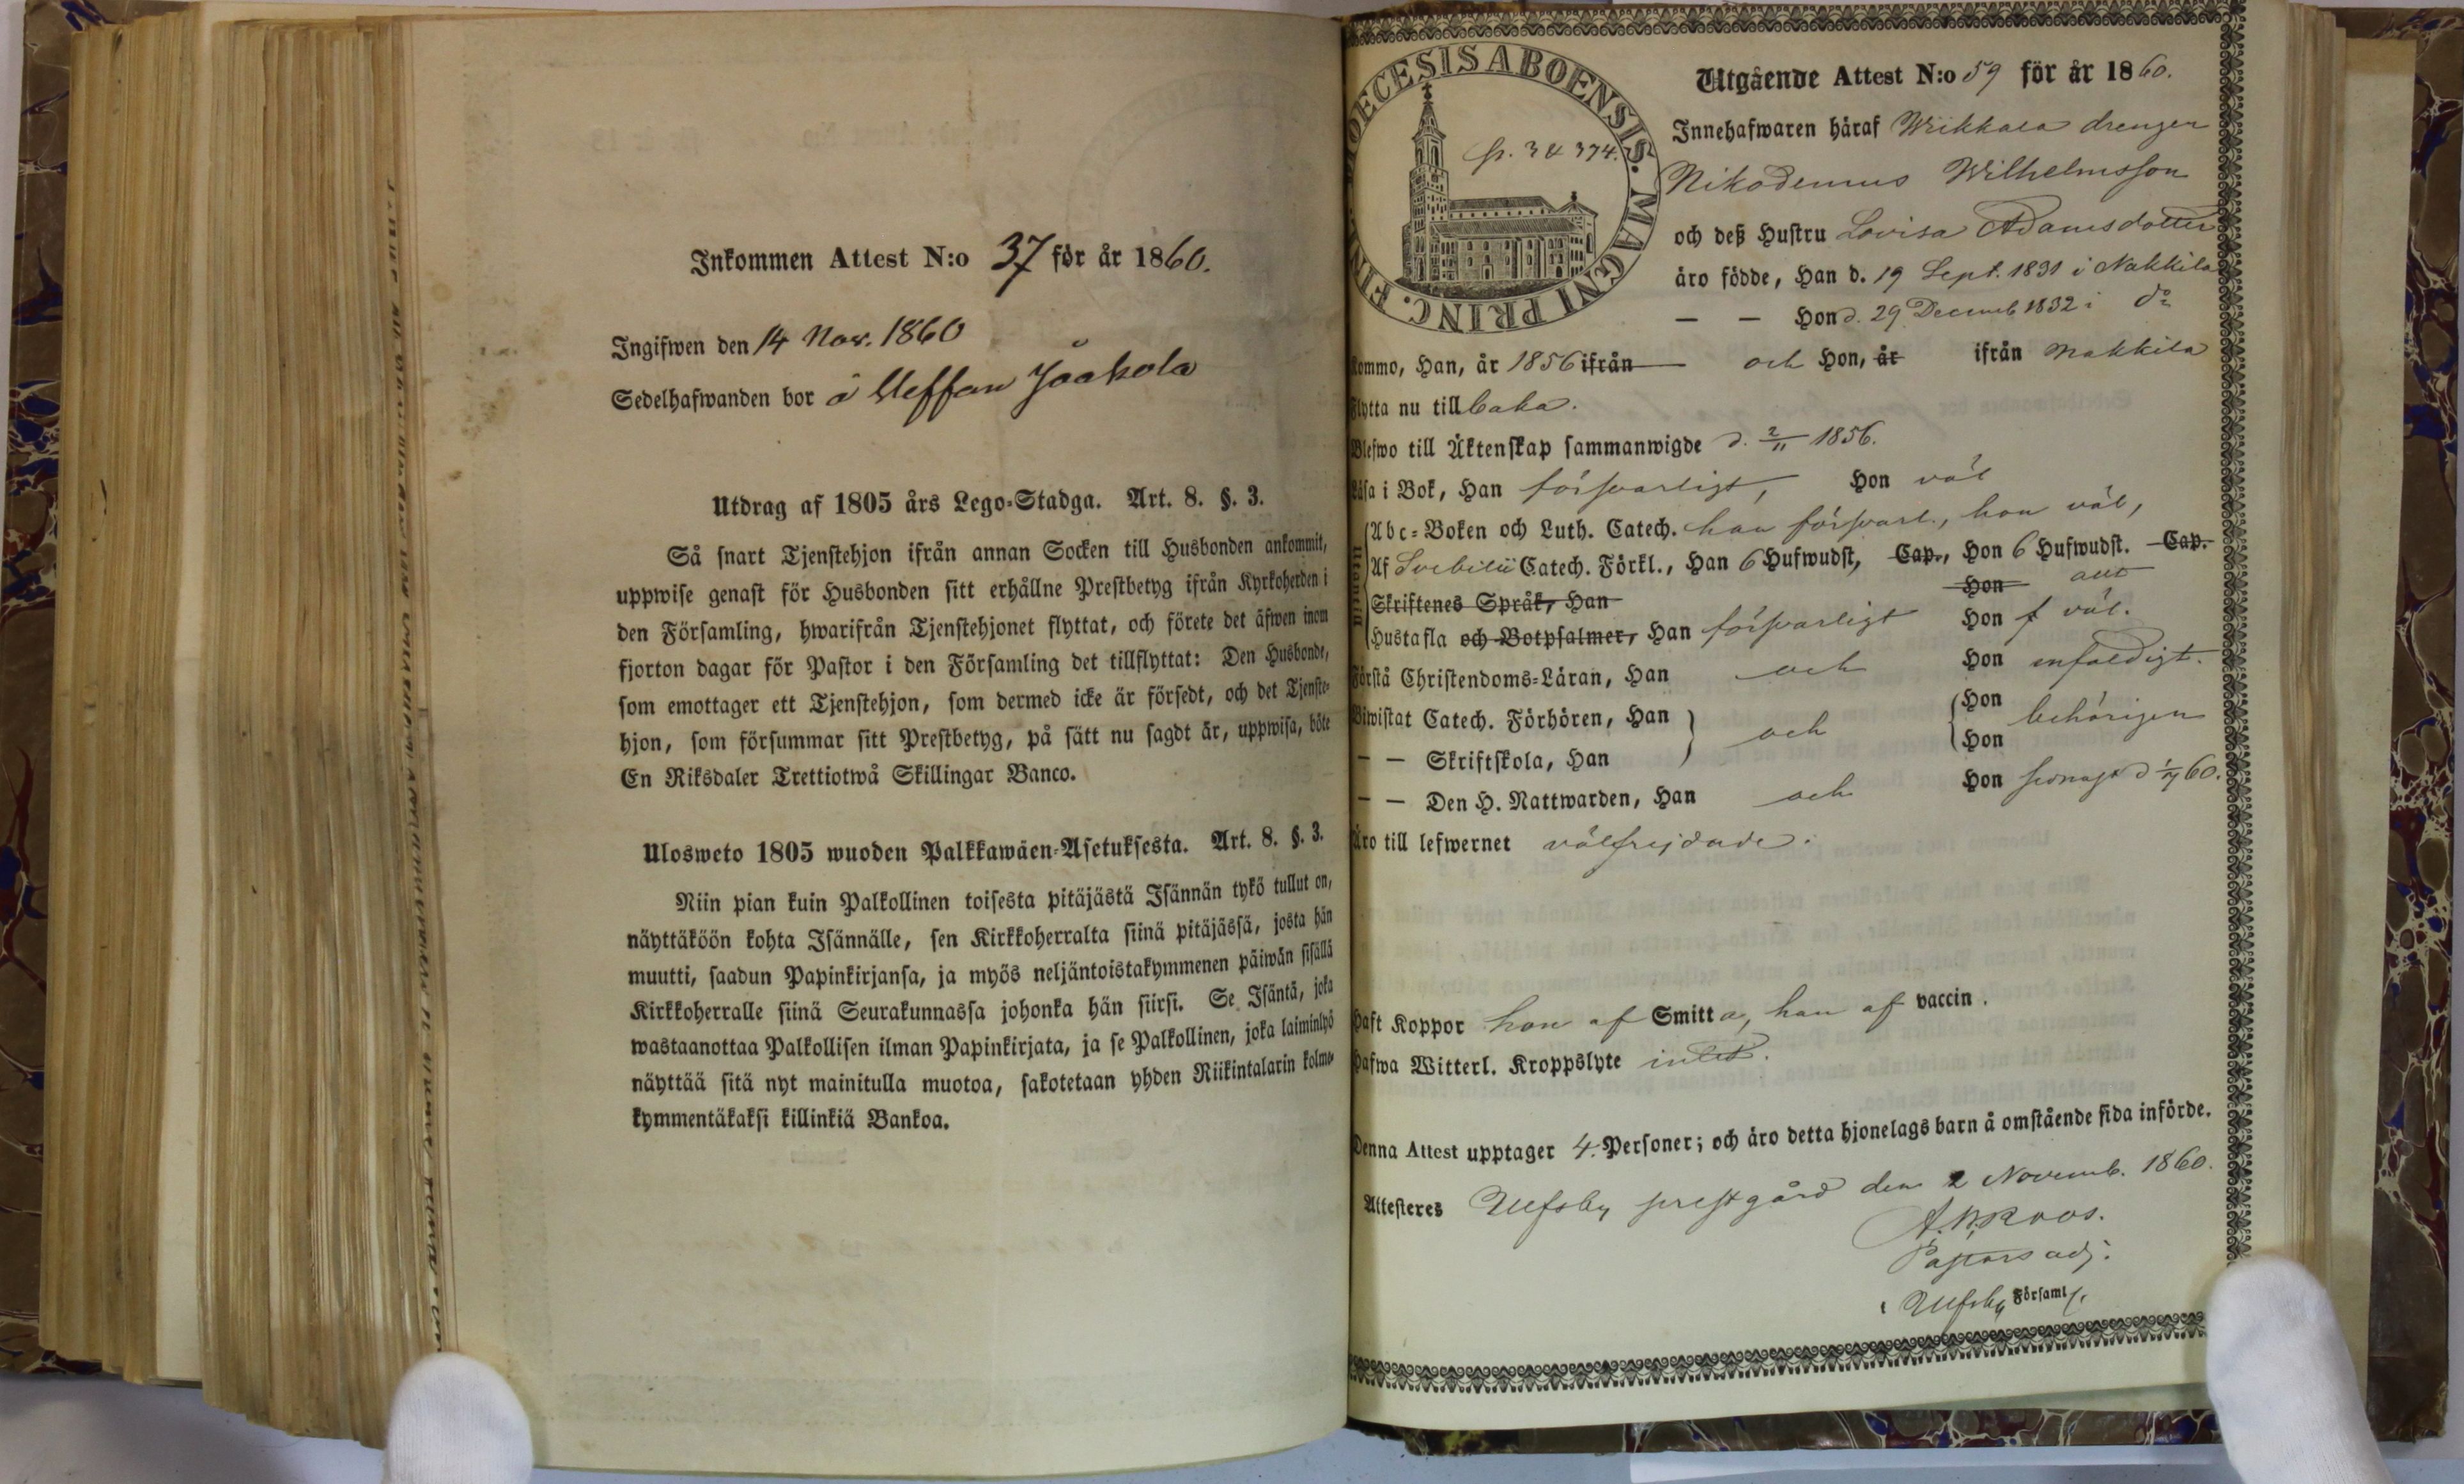 Inkommen Attest N:o 37 för år 1860.
Ingifwen den 14 Nov. 1860
Sedelhafwanden bor å Jaakola
Utdrag af 1805 års Lego-Stadga. Art. 8. §. 3.
Så snart Tjenstehjon ifrån annan Socken till Husbonden ankommit,
uppwise genast för Husbonden sitt erhållne Prestbetyg ifrån Kyrkoherden i
den Församling, hwarifrån Tjenstehjonet flyttat, och förete det äfwen inom
fjorton dagar för Pastor i den Församling det tillflyttat: Den Husbonde,
som emottager ett Tjenstehjon, som dermed icke är försedt, och det Tjenste-
hjon, som försummar sitt Prestbetyg, på sätt nu sagdt är, uppwisa, böte
En Riksdaler Trettiotwå Skillingar Banco.
Ulosweto 1805 wuoden Palkkawäen-Asetuksesta. Art. 8. §. 3.
Niin pian kuin Palkollinen toisesta pitäjästä Isännän tykö tullut on,
näyttäköön kohta Isännälle, sen Kirkkoherralta siinä pitäjässä, josta hän
muutti, saadun Papinkirjansa, ja myös neljäntoistakymmenen päiwän sisällä
Kirkkoherralle siinä Seurakunnassa johonka hän siirsi. Se Isäntä, joka
wastaanottaa Palkollisen ilman Papinkirjata, ja se Palkollinen, joka laiminlyö
näyttää sitä nyt mainitulla muotoa, sakotetaan yhden Riikintalarin kolme-
kymmentäkaksi killinkiä Bankoa.
DIOECESIS ABOENSIS. MAGNI PRINC. FINL.
p. 3 & 374.
Utgående Attest N:o 59 för år 1860.
Innehafwaren häraf Wiikkala drengen
Nikodemus Wilhelmsson
och deß Hustru Lovisa Adamsdotter
äro födde, Han d. 19 Sept. 1831 i Nakkila
— — Hon d. 29 Decemb 1832 i do
Kommo, Han, år 1856 ifrån och Hon, år ifrån Nakkila
Flytta nu tillbaka.
Blefwo till Äktenskap sammanwigde d. 2/11 1856.
Läsa i Bok, Han försvarligt, Hon väl
Utantill
Abc-Boken och Luth. Catech. han försvarl., hon väl,
Af Svebilii Catech. Förkl., Han 6 Hufwudst, Cap., Hon 6 Hufwudst. Cap.
Skriftenes Språk, Han Hon allt
Hustafla och Botpsalmer, Han försvarligt Hon f väl.
Förstå Christendoms-Läran, Han och Hon enfaldigt.
Biwistat Catech. Förhören, Han och Hon behörigen
— — Skriftskola, Han Hon
— — Den H. Nattwarden, Han och Hon senast d 60.
Äro till lefwernet välfrejdade.
Haft Koppor hon af Smitta, han af vaccin.
Hafwa Witterl. Kroppslyte intet.
Denna Attest upptager 4. Personer; och äro detta hjonelags barn å omstående sida införde.
Attesteres Ulfsby prestgård den 2 Novemb. 1860.
A. W. Roos.
Pastors adj.
i Ulfsby Församl.